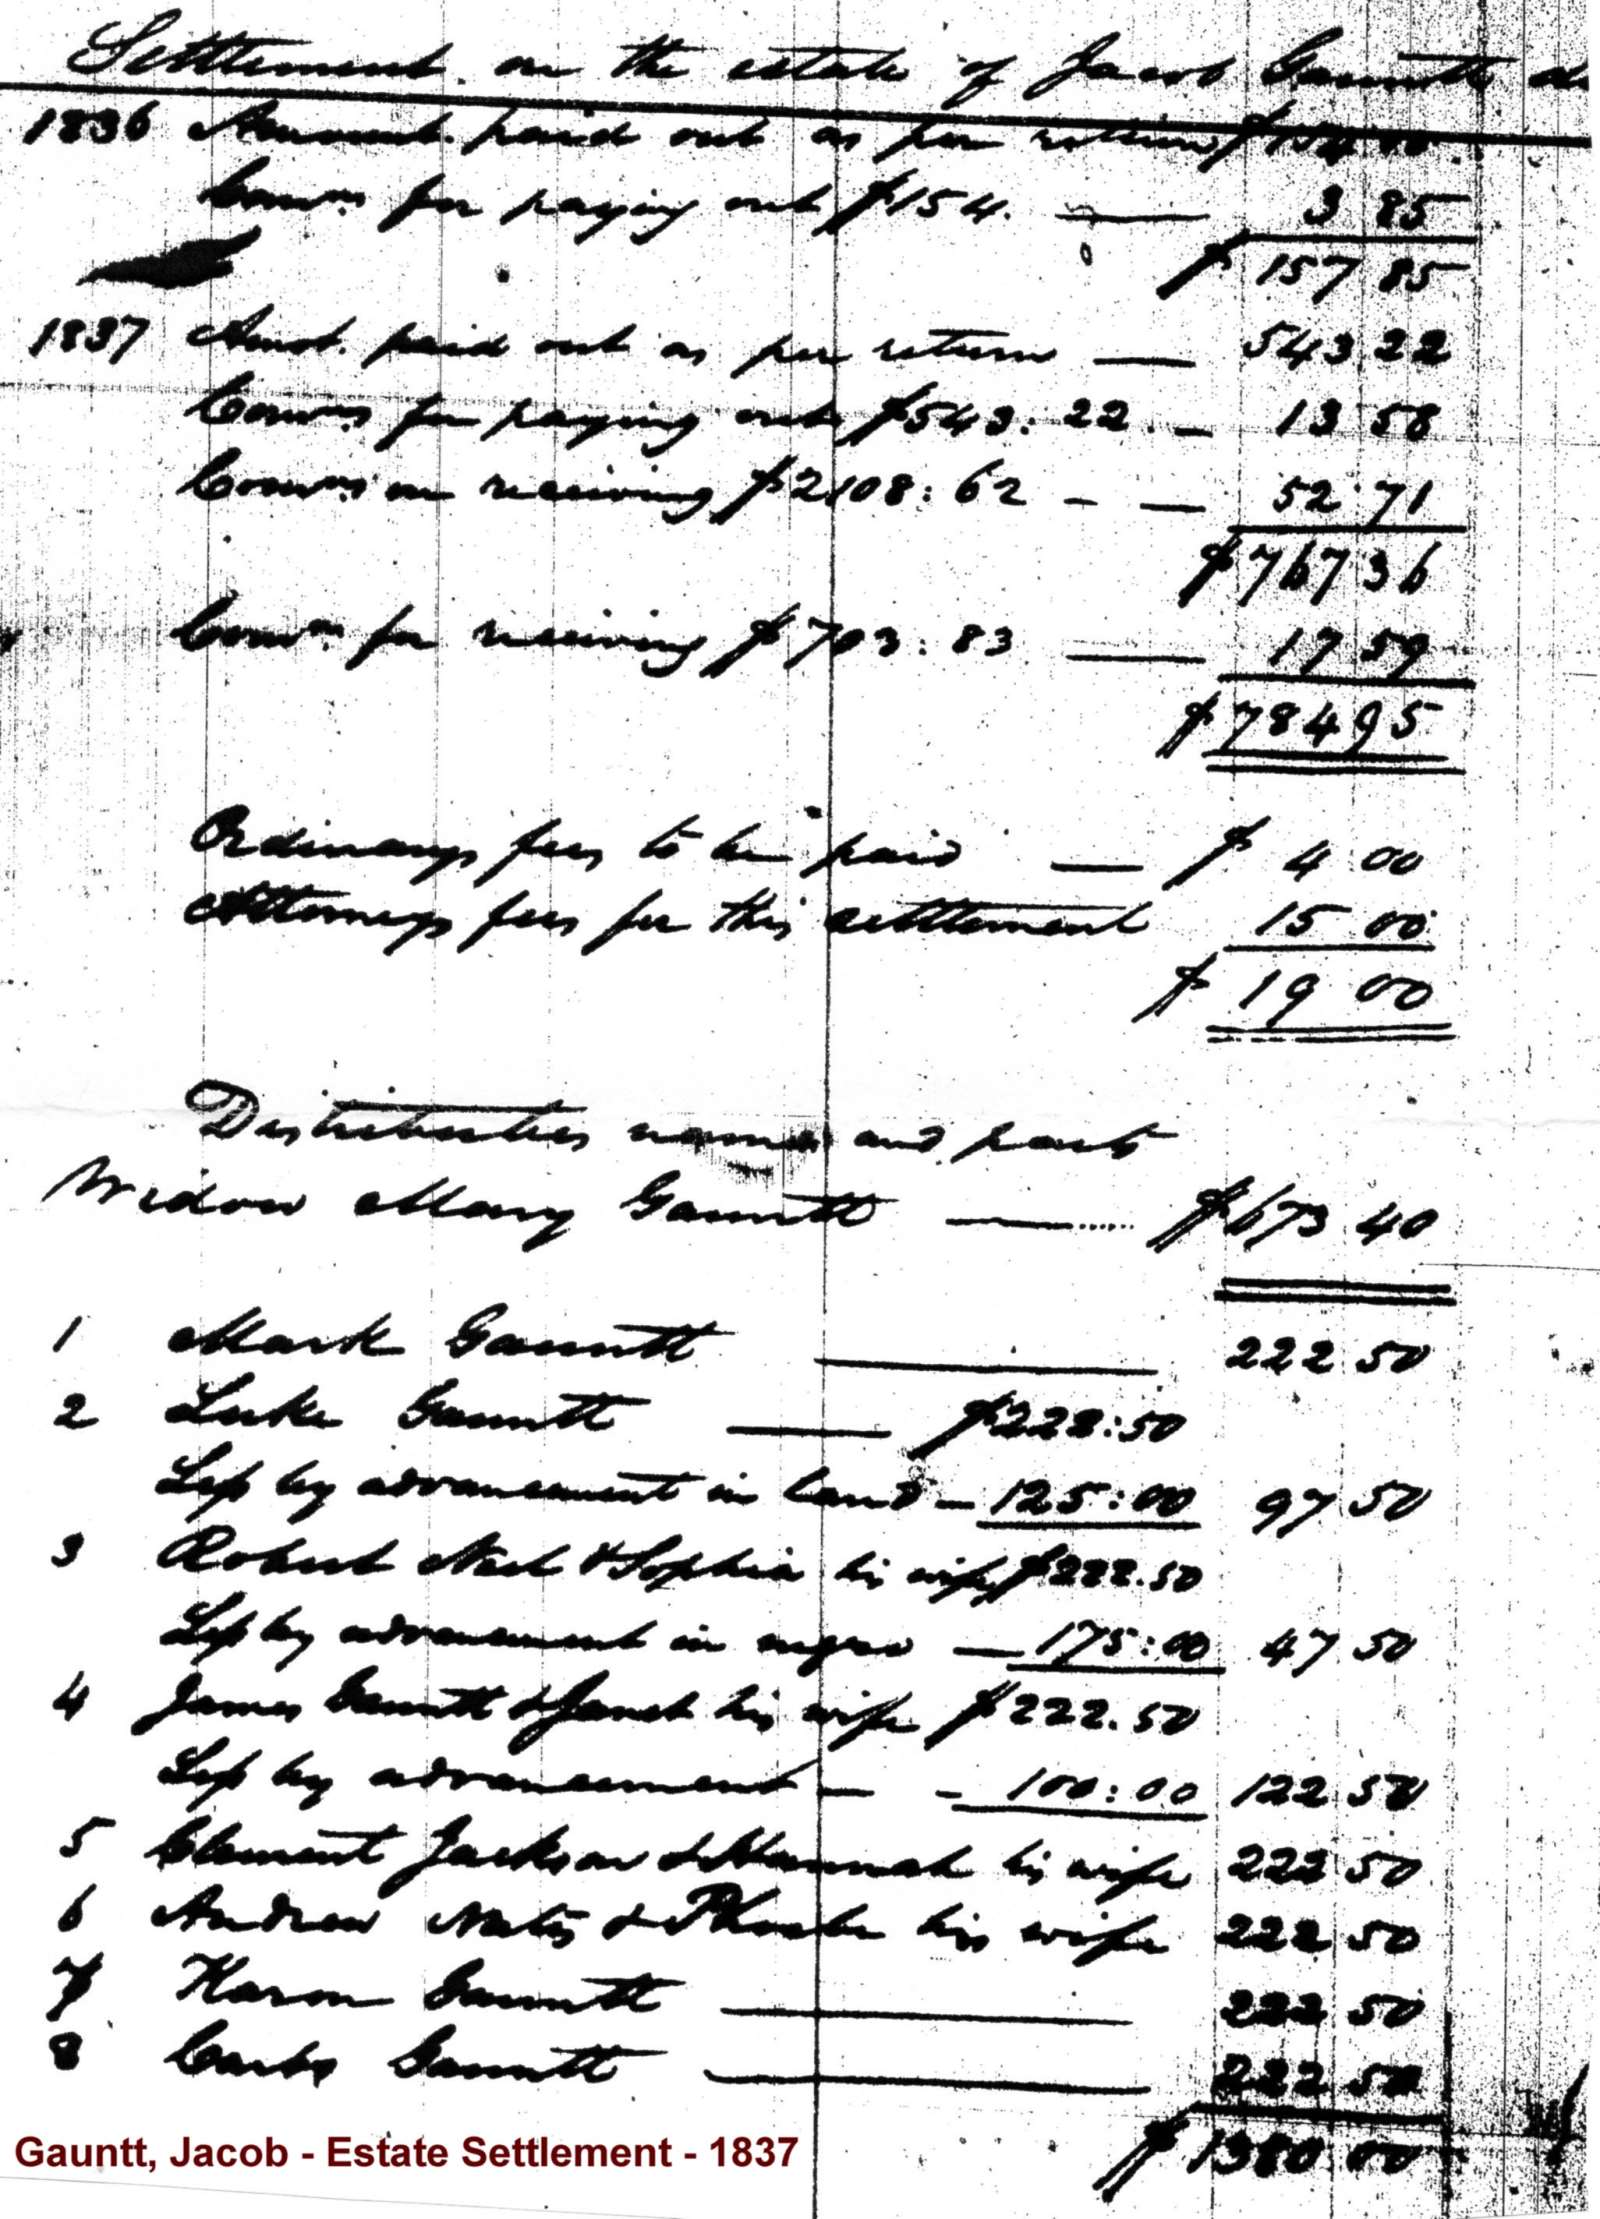 Settlement on the estate of Jacob Gauntt de
1836 Amount paid out as per return $154 00
Comns for paying out $154. 3 85
$157 85
1837 Amot. paid out as per return 543 22
Comns for paying out $543:22. 13 58
Comns on receiving $2108:62 52 71
$767 36
Comns for receiving $703:83 17 59
$784 95
Ordinarys fees to be paid $ 4 00
Attorneys fees for this settlement 15 00
$ 19 00
Distributees names and parts
Widow Mary Gauntt $673 40
1 Mark Gauntt 222 50
2 Luke Gauntt $222:50
Less by advancement in land 125:00 97 50
3 Robert & Sophia his wife $222.50
Less by advancement in negro 175:00 47 50
4 James Gauntt & Janet his wife $222.50
Less by advancement 100:00 122 50
5 Clement Jackson & Hannah his wife 222 50
6 Andrew & Phoebe his wife 222 50
7 Gauntt 222 50
8 Gauntt 222 50
$1380 00
Gauntt, Jacob - Estate Settlement - 1837